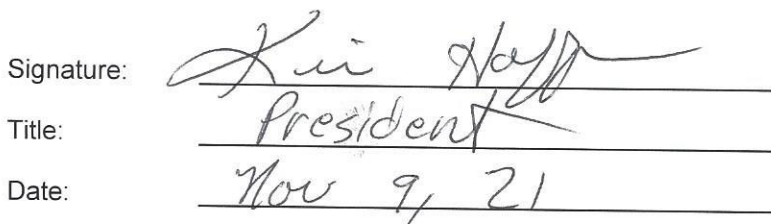 Signature:
Title: President
Date: Nov 9, 21